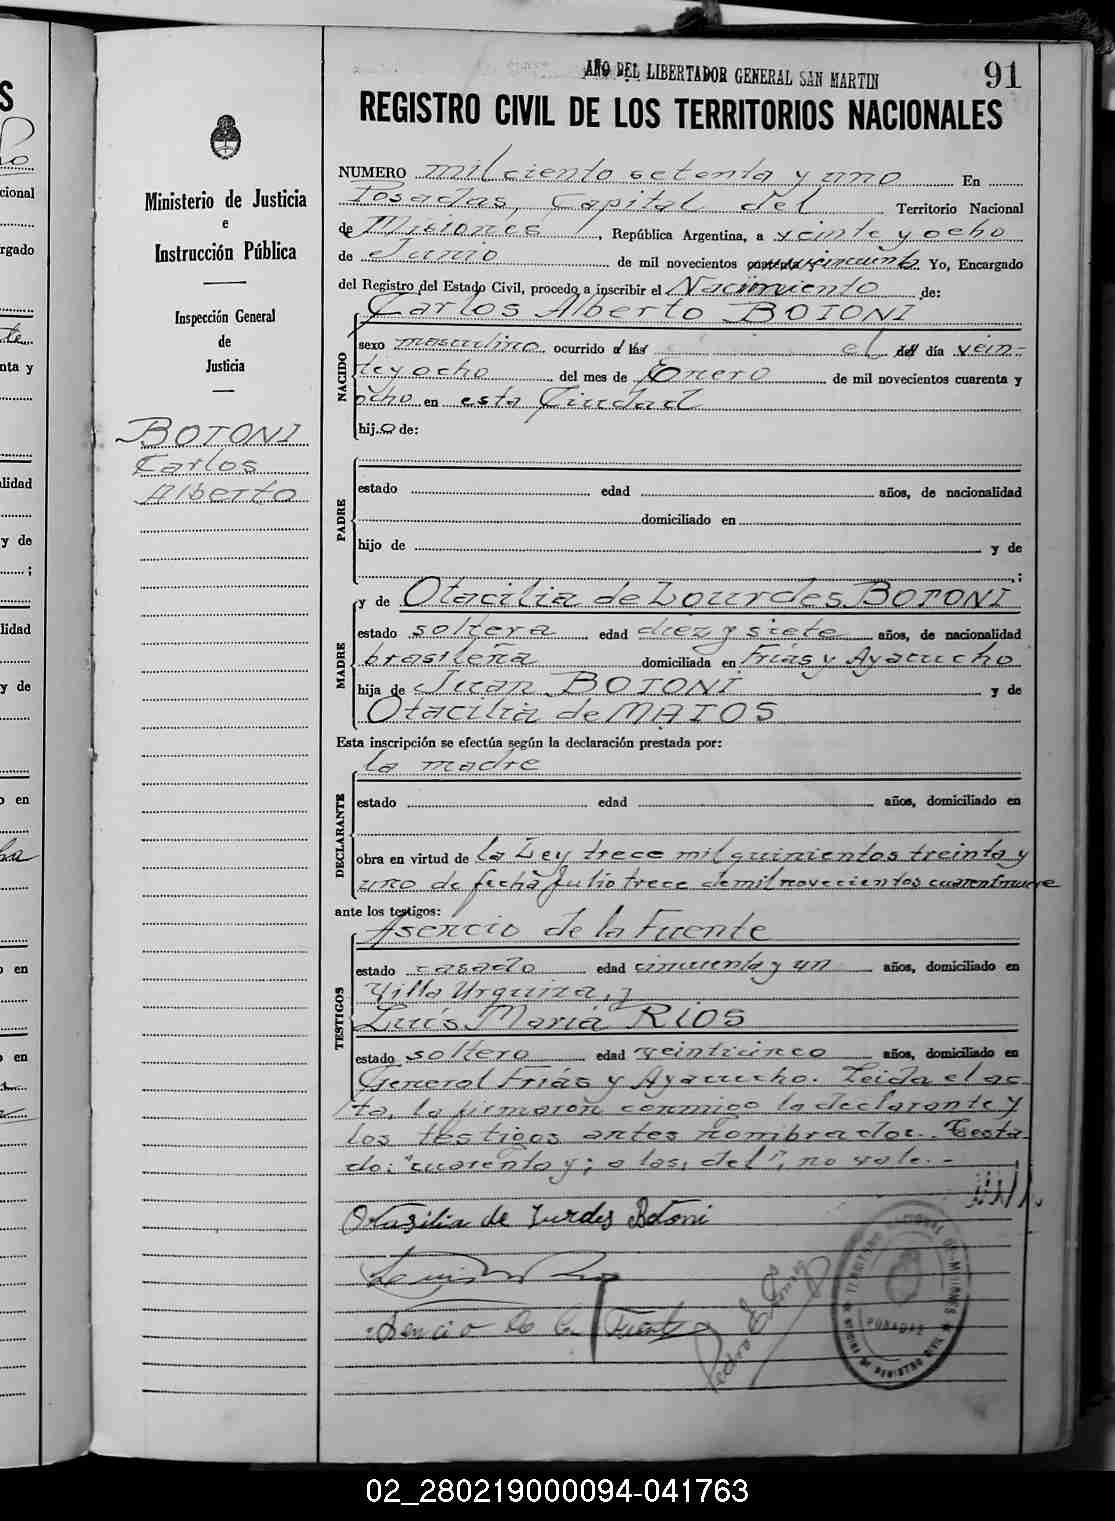 AÑO DEL LIBERTADOR GENERAL SAN MARTIN
91
REGISTRO CIVIL DE LOS TERRITORIOS NACIONALES
Ministerio de Justicia
e
Instrucción Pública
Inspección General
de
Justicia
BOTONI
Carlos
Alberto
NUMERO mil ciento setenta y uno En
Posadas, Capital del Territorio Nacional
de Misiones, República Argentina, a veinte y ocho
de Junio de mil novecientos cuarenta y cincuenta Yo, Encargado
del Registro del Estado Civil, procedo a inscribir el Nacimiento de:
NACIDO
Carlos Alberto BOTONI
sexo masculino ocurrido a las el del día vein-
te y ocho del mes de Enero de mil novecientos cuarenta y
ocho en esta Ciudad
hijo de:
PADRE
estado edad años, de nacionalidad
domiciliado en
hijo de y de
;
MADRE
y de Otacilia de Lourdes BOTONI
estado soltera edad diez y siete años, de nacionalidad
brasileña domiciliada en Frias y Ayacucho
hija de Juan BOTONI y de
Otacilia de MATOS
Esta inscripción se efectúa según la declaración prestada por:
la madre
DECLARANTE
estado edad años, domiciliado en
obra en virtud de la Ley trece mil quinientos treinta y
uno de fecha Julio trece de mil novecientos
ante los testigos:
TESTIGOS
Asencio de la Fuente
estado casado edad cincuenta y un años, domiciliado en
Villa Urquiza, y
Luis Maria RIOS
estado soltero edad veinticinco años, domiciliado en
General Frias y Ayacucho. Leida el ac-
ta, la firmaron conmigo la declarante y
los testigos antes nombrados. Testa-
do: "cuarenta y; a las, del", no vale.-
Otasilia de Lurdes Botoni
Asencio de la Fuente
Pedro E.
TERRITORIO NACIONAL DE MISIONES
POSADAS
OFICINA DE REGISTRO CIVIL
02_280219000094-041763